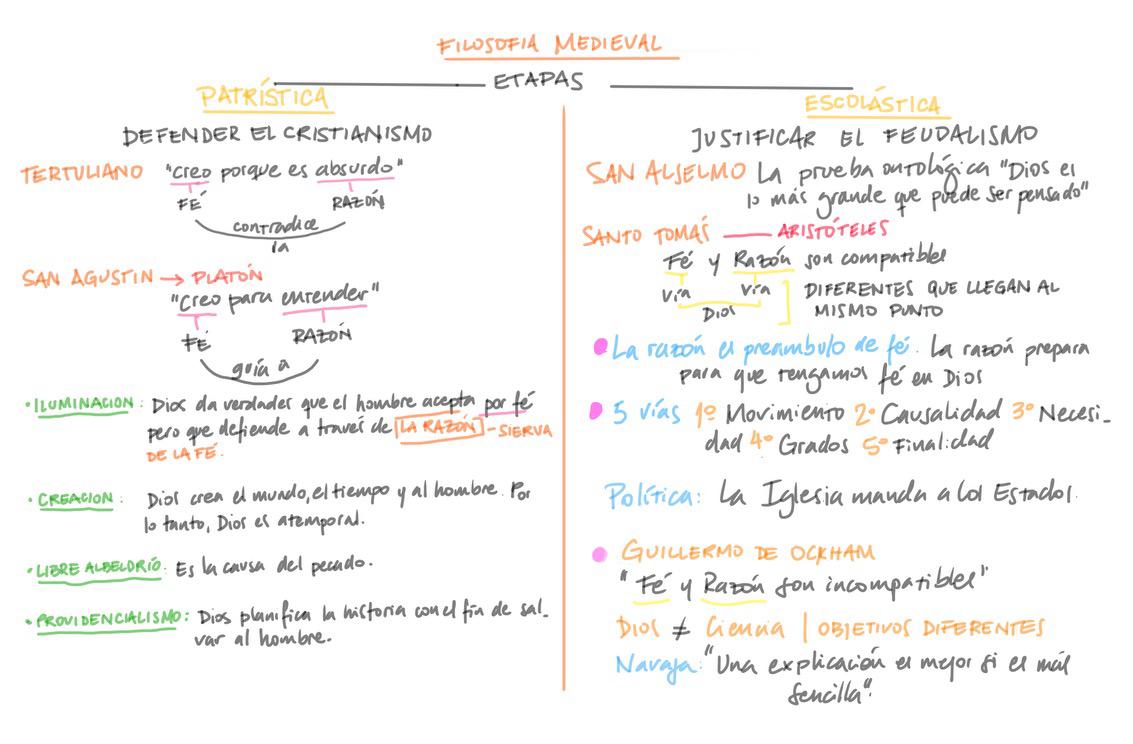 FILOSOFIA MEDIEVAL
ETAPAS
PATRÍSTICA
DEFENDER EL CRISTIANISMO
TERTULIANO "creo porque es absurdo"
FÉ RAZÓN
contradice
la
SAN AGUSTIN → PLATÓN
"Creo para entender"
FÉ RAZÓN
guía a
• ILUMINACION: Dios da verdades que el hombre acepta por fé
pero que defiende a través de LA RAZÓN - SIERVA
DE LA FÉ.
• CREACION: Dios crea el mundo, el tiempo y al hombre. Por
lo tanto, Dios es atemporal.
• LIBRE ALBELDRÍO. Es la causa del pecado.
• PROVIDENCIALISMO: Dios planifica la historia con el fin de sal-
var al hombre.
ESCOLÁSTICA
JUSTIFICAR EL FEUDALISMO
SAN ALSELMO La prueba ontológica "Dios es
lo más grande que puede ser pensado"
SANTO TOMÁS — ARISTÓTELES
Fé y Razón son compatibles
vía vía DIFERENTES QUE LLEGAN AL
Dios MISMO PUNTO
La razón es preambulo de fé. La razón prepara
para que tengamos fé en Dios
5 vías 1º Movimiento 2º Causalidad 3º Necesi-
dad 4º Grados 5º Finalidad
Política: La Iglesia manda a los Estados.
GUILLERMO DE OCKHAM
"Fé y Razón son incompatibles"
Dios ≠ Ciencia | OBJETIVOS DIFERENTES
Navaja: "Una explicación es mejor si es más
sencilla".